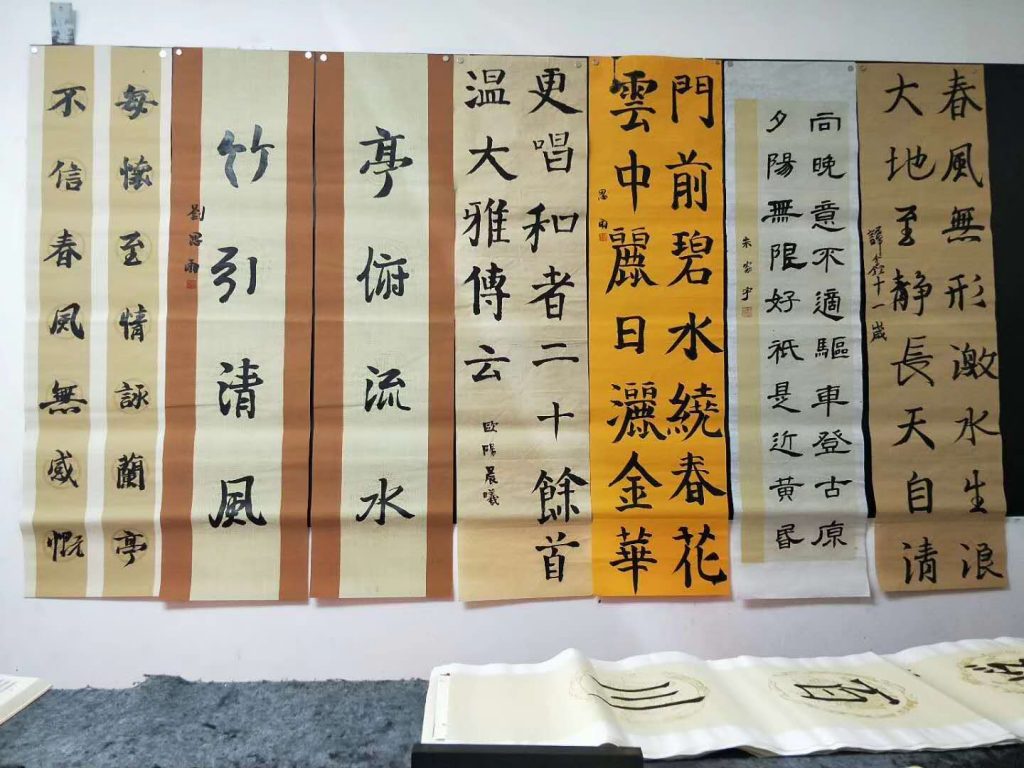 春風無形激水生浪
大地至静長天自清
十一歲
向晚意不適驅車登古原
夕陽無限好祇是近黄昏
門前碧水繞春花
雲中麗日灑金華
思雨
更唱和者二十餘首
温大雅傳云
歐陽晨曦
亭俯流水
竹引清風
劉思雨
每懷至情詠蘭亭
不信春風無感慨
川百